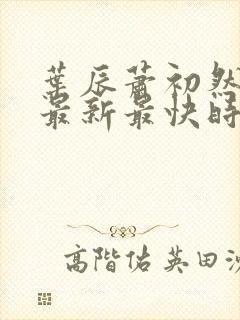 葉辰蕭初然
最新最快時
高階佑英田